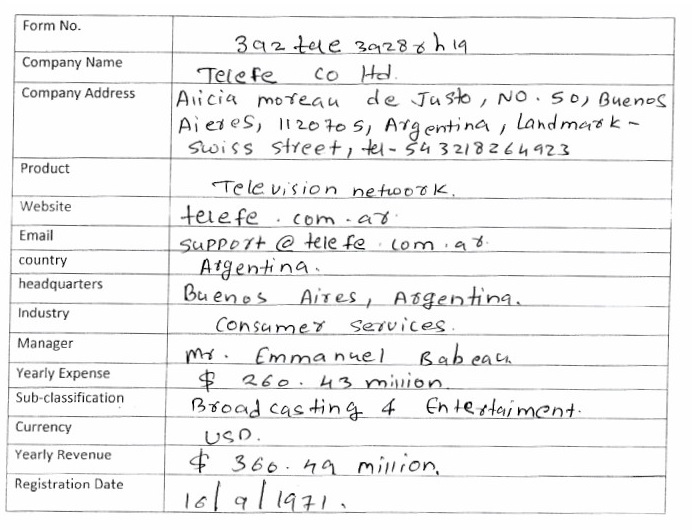 Form No.
392 tele 3928rh19
Company Name
Telefe co ltd.
Company Address
Alicia moreau de Justo, NO. 50, Buenos
Aieres, 1120705, Argentina, Landmark -
Swiss street, tel - 543218264923
Product
Television network.
Website
telefe.com.ar
Email
support@telefe.com.ar
country
Argentina.
headquarters
Buenos Aires, Argentina.
Industry
Consumer services.
Manager
Mr. Emmanuel Babeau
Yearly Expense
$ 260.43 million
Sub-classification
Broadcasting & Entertaiment.
Currency
USD.
Yearly Revenue
$ 366.49 million.
Registration Date
16/9/1971.